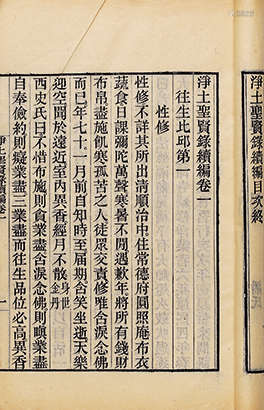 淨土聖賢錄續編目次終
淨土聖賢錄續編卷一
往生比邱第一
性修
性修不詳其所出清順治中住常德府圓照庵布衣
蔬食日課彌陀萬聲寒暑不閒遇歉年將所有錢財
布帛盡施飢寒孤苦之人徒眾交責修唯含淚念佛
而已年七十一月前自知時至屆期含笑坐逝天樂
迎空聞於遠近室內異香經月不散身世金丹
西史氏曰不惜布施則貪業盡含淚念佛則嗔業盡
自奉儉約則癡業盡三業盡而往生品位必高異香
淨土聖賢錄續編卷一
一